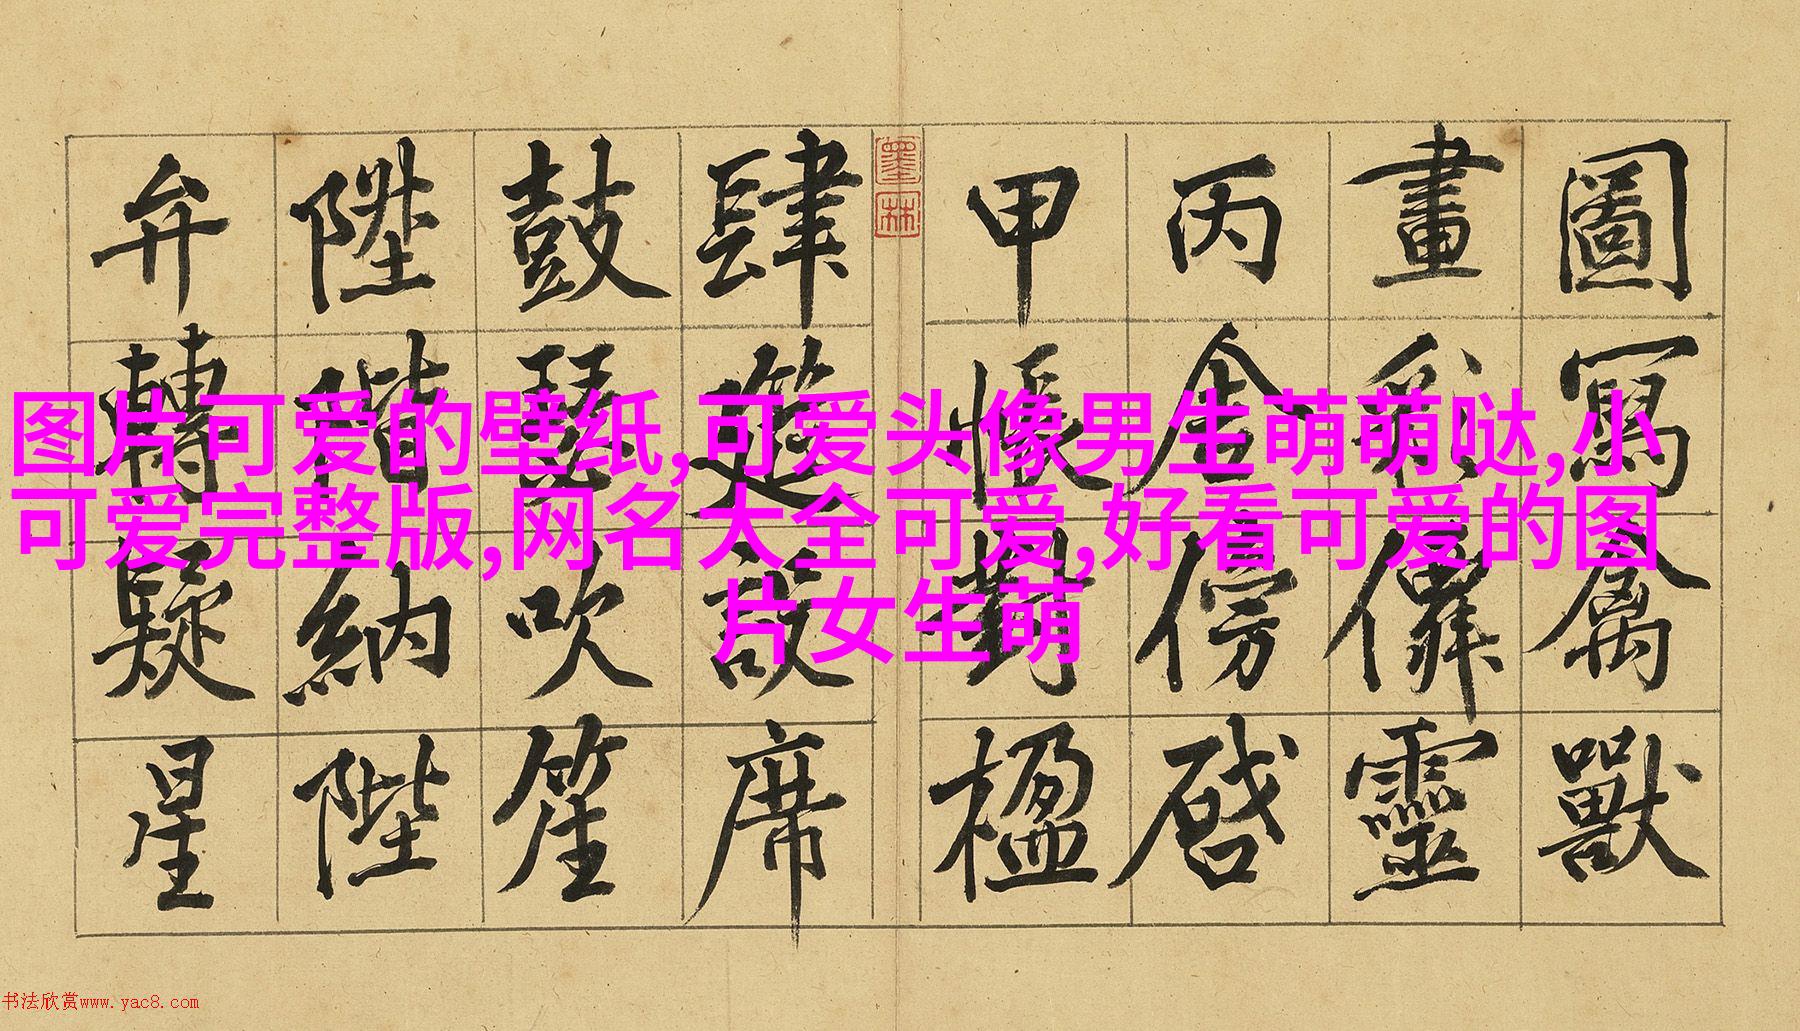 圖寫禽獸
畫彩僊靈
丙舍傍啓
甲帳對楹
墨林
肆筵設席
鼓瑟吹笙
陞階納陛
弁轉疑星
图片可爱的壁纸,可爱头像男生萌萌哒,小
可爱完整版,网名大全可爱,好看可爱的图
片女生萌
书法欣赏www.yac8.com